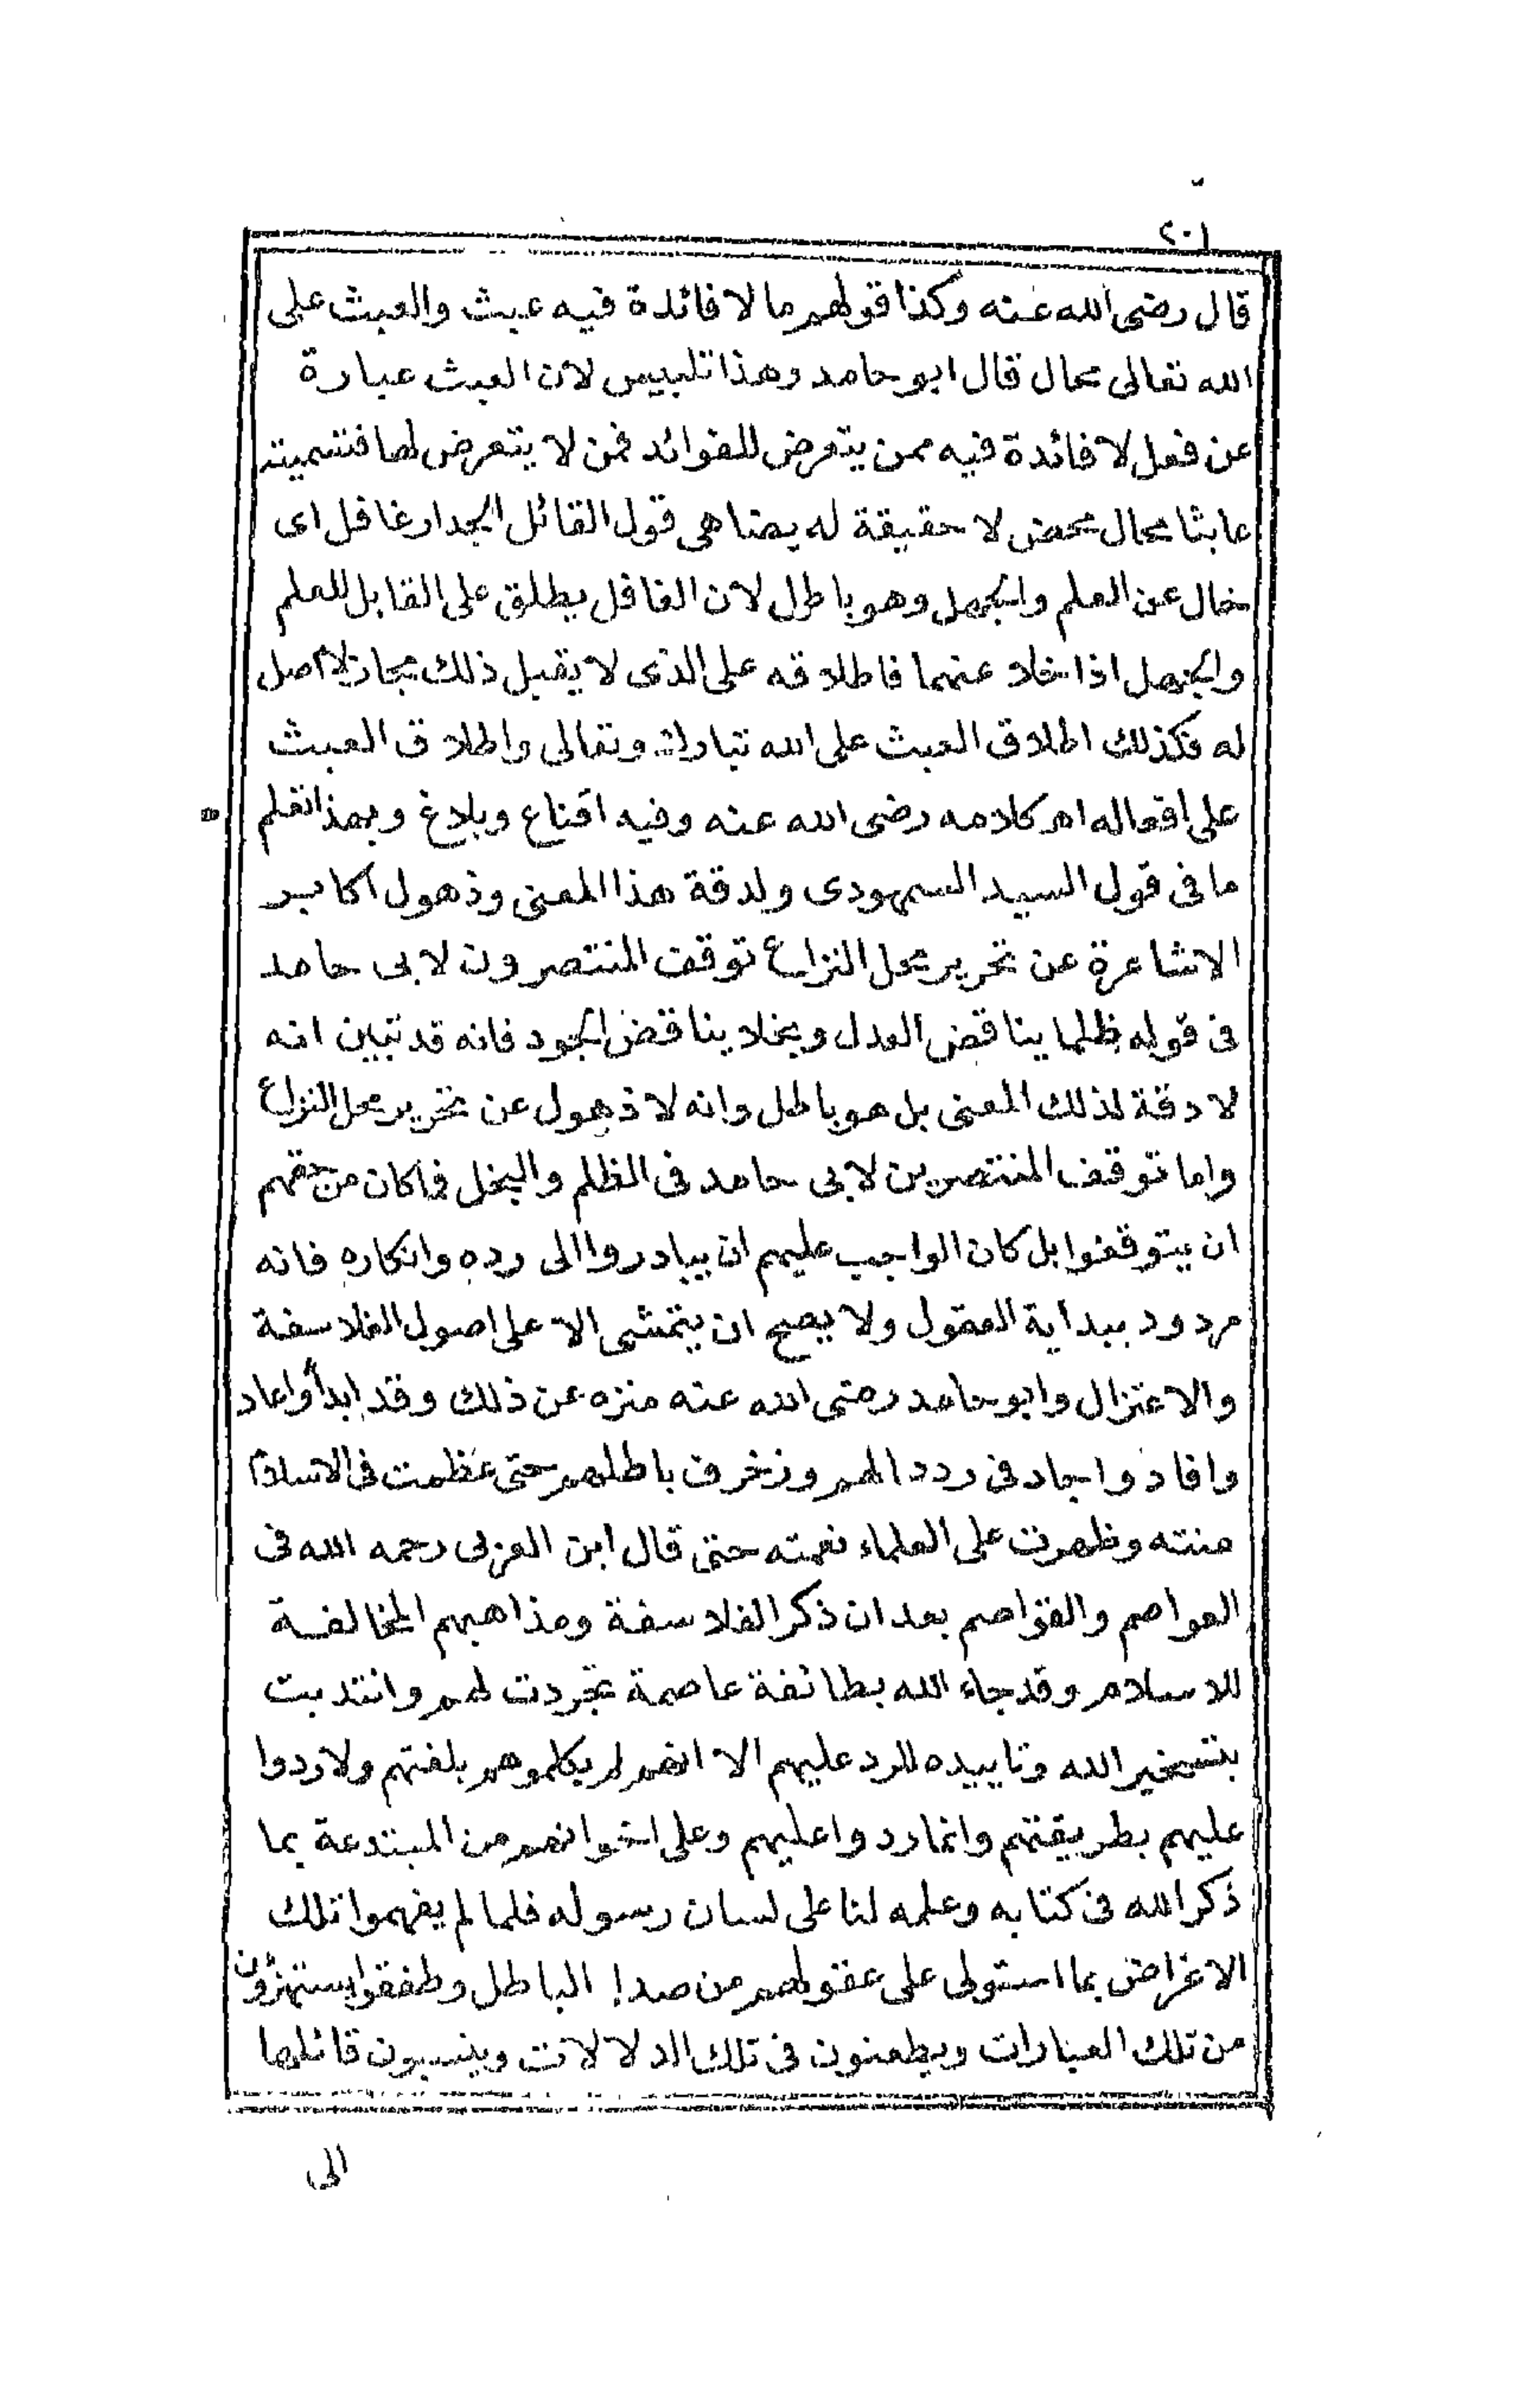 ٢٠١
قال رضى الله عنه وكذا قولهم ما لا فائدة فيه عبث والعبث على
الله تعالى محال قال ابو حامد وهذا تلبيس لان العبث عبارة
عن فعل لا فائدة فيه ممن يتعرض للفوائد فمن لا يتعرض لها فتسميته
عابثا محال محض لا حقيقة له يضاهى قول القائل الجدار غافل اى
خال عن العلم والجهل وهو باطل لان الغافل يطلق على القابل للعلم
والجهل اذا خلا عنهما فاطلاقه على الذى لا يقبل ذلك مجاز لا اصل
له فكذلك اطلاق العبث على الله تبارك وتعالى واطلاق العبث
على افعاله اهر كلامه رضى الله عنه وفيه اقناع وبلاغ وبهذا تعلم
ما فى قول السيد السمهودى ولدقة هذا المعنى وذهول اكابر
الاشاعرة عن تحرير محل النزاع توقف المنتصرون لابى حامد
فى قوله ظلما يناقض العدل وبخلا يناقض الجود فانه قد تبين انه
لا دقة لذلك المعنى بل هو باطل وانه لا ذهول عن تحرير محل النزاع
واما توقف المنتصرين لابى حامد فى الظلم والبخل فما كان من حقهم
ان يتوقفوا بل كان الواجب عليهم ان يبادروا الى رده وانكاره فانه
مردود ببداية العقول ولا يصح ان يتمشى الا على اصول الفلاسفة
والاعتزال وابو حامد رضى الله عنه منزه عن ذلك وقد ابدأ واعاد
وافاد واجاد فى ردد الهم وزخرف باطلهم حتى عظمت فى الاسلام
منته وظهرت على العلماء نعمته حتى قال ابن العربى رحمه الله فى
العواصم والقواصم بعد ان ذكر الفلاسفة ومذاهبهم المخالفة
للاسلام وقد جاء الله بطائفة عاصمة تجردت لهم وانتدبت
بتسخير الله وتاييده للرد عليهم الا انهم لم يكلموهم بلغتهم ولا ردوا
عليهم بطريقتهم وانما ردوا عليهم وعلى اخوانهم من المبتدعة بما
ذكر الله فى كتابه وعلمه لنا على لسان رسوله فلما لم يفهموا تلك
الاغراض بما استولى على عقولهم من صدإ الباطل وطفقوا يستهزؤن
من تلك العبارات ويطعنون فى تلك الدلالات وينسبون قائلها
الى